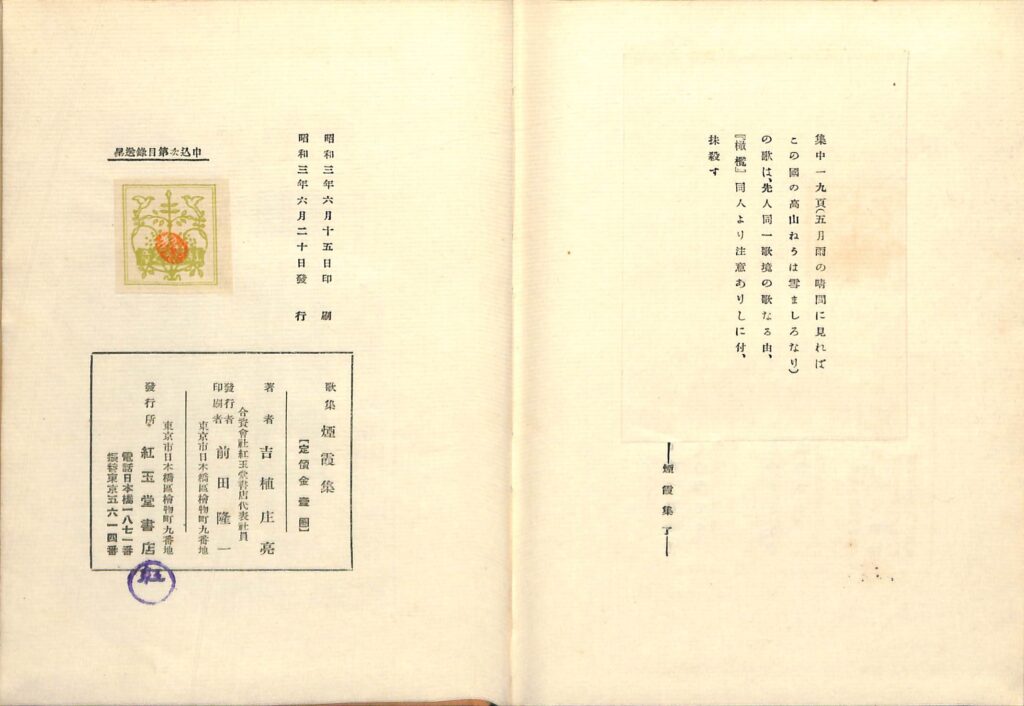 集中一九頁(五月雨の晴間に見れば
この國の高山ねろは雪ましろなり)
の歌は、先人同一歌境の歌なる由、
『橄欖』同人より注意ありしに付、
抹殺す
煙霞集了
昭和三年六月十五日印刷
昭和三年六月二十日發行
申込次第目錄送呈
歌集 煙霞集
【定價金壹圓】
著者 吉植庄亮
合資會社紅玉堂書店代表社員
發行者
印刷者 前田隆一
東京市日本橋區檜物町九番地
東京市日本橋區檜物町九番地
發行所 紅玉堂書店
電話日本橋一八七一番
振替東京五六一四番